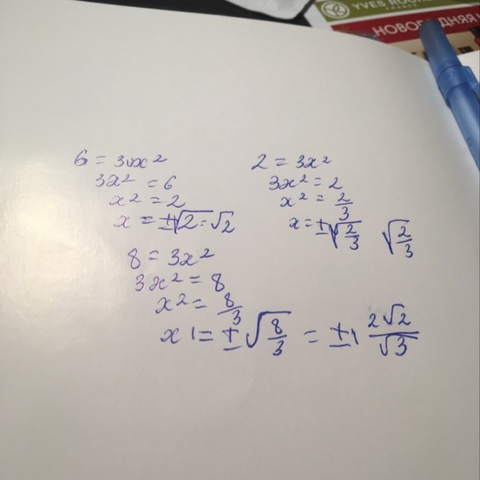 YVES ROCHE
НОВОГОДНЯЯ
6 = 3x²
3x² = 6
x² = 2
x = ±√2 = √2
2 = 3x²
3x² = 2
x² = 2/3
x = ±√(2/3) √(2/3)
8 = 3x²
3x² = 8
x² = 8/3
x 1 = ±√(8/3) = ±1 2√2/√3